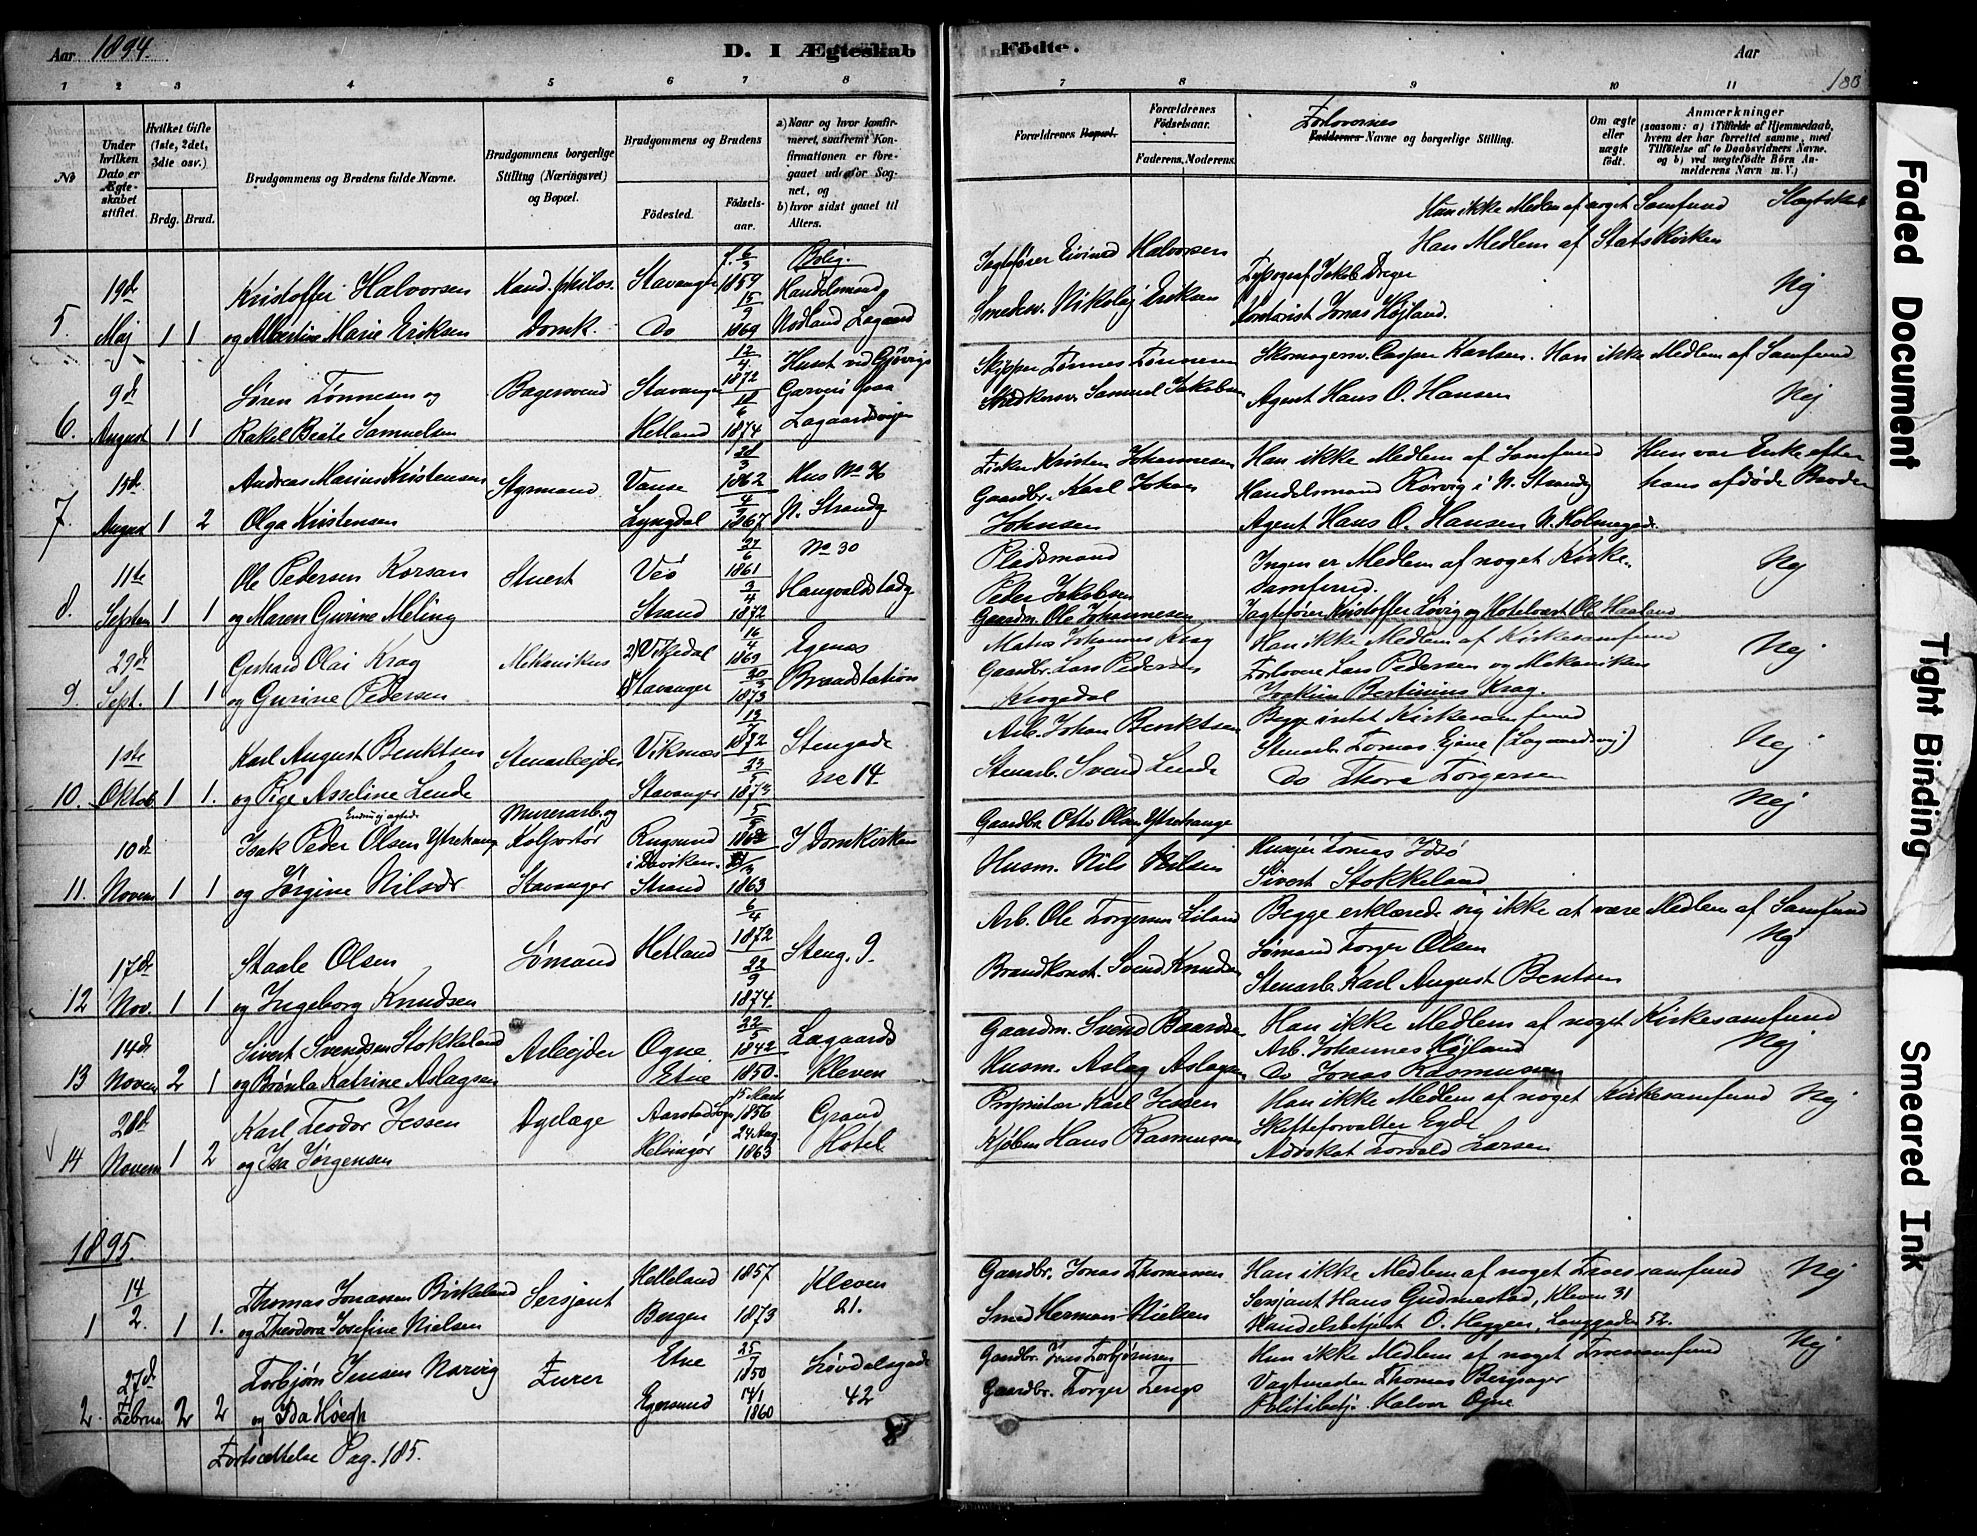 Aar 1894.
D. I Ægteskab Födte.
Aar
183
1 2 3 4 5 6 7 8 7 8 9 10 11
No
Under hvilken Dato er Ægteskabet stiftet.
Hvilket Gifte (1ste, 2det, 3die osv.)
Brdg. Brud.
Brudgommens og Brudens fulde Navne.
Brudgommens borgerlige Stilling (Næringsvei) og Bopæl.
Brudgommens og Brudens
Födested.
Födsels-aar.
a) Naar og hvor konfirmeret, saafremt Konfirmationen er foregaaet udenfor Sognet, og b) hvor sidst gaaet til Alters.
Forældrenes Bopæl.
Forældrenes Födselsaar.
Faderens. Moderens.
Forlovernes
Faddernes Navne og borgerlige Stilling.
Om ægte eller uægte födt.
Anmærkninger
(saasom: a) i Tilfælde af Hjemmedaab, hvem der har forrettet samme, med Tilföielse af to Daabsvidners Navne, og b) ved uægtefödte Börn Anmelderens Navn m. V.)
Hun ikke Medlem af noget Samfund
Han Medlem af Statskirken
5 19de Maj 1 1
Kristoffer Halvorsen
og Albertine Marie Eriksen
Kand. philos. Domk.
Stavanger
Do
f. 6/3 1859
15/9 1869
Bolig.
Handelsmand Nodland Lagaard
Jagtefører Eivind Halvorsen
Smedesv. Nikolaj Eriksen
Typograf Jakob Dreyer
Kontorist Jonas Højland.
Nej
6. 9de August 1 1
Søren Tønnesen og
Rakel Beate Samuelsen
Bagersvend
Stavanger
Hetland
12/4 1872
18/6 1874
Huset ved Gjøvigs Garveri paa Lagaardsvejen
Skipper Tønnes Tønnesen
Snedkersv. Samuel Jakobsen
Skomagersv. Casper Karlsen. Han ikke Medlem af Samfund
Agent Hans O. Hansen
Nej
7. 15de August 1 2
Andreas Marius Kristensen
Olga Kristensen
Styrmand
Vanse
Lyngdal
3 1862
4/3 1867
Hus No 36 N. Strandg
Fisker Kristen Johannesen
Gaardbr. Karl Johan Johnsen
Han ikke Medlem af Samfund
Handelsmand Rørvig i N. Strandg
Agent Hans O. Hansen N. Holmegd.
Hun var Enke efter hans afdøde Broder
8. 11te Septem 1 1
Ole Pedersen Korsan
og Maren Gurine Meling
Stuert
Veø
Strand
27/6 1861
3/4 1872
No 30 Haugvaldstadg
Pladsmand Peder Jakobsen
Gaardm. Ole Johannesen
Ingen er Medlem af noget Kirkesamfund.
Jagtefører Kristoffer Løvig og Hotelvært Ole Haaland
Nej
9. 29de Sept. 1 1
Gerhard Olai Krag
og Gurine Pedersen
Mekanikus
2) Vikedal
1) Stavanger
16/4 1869
30/3 1873
Egenæs Brandstation
Matros Johannes Krag
Gaardbr. Lars Pedersen Krogedal
Han ikke Medlem af Kirkesamfund
Forlovere Lars Pedersen og Mekaniker
Joakim Bertinius Krag.
Nej
10. 1ste Oktob 1 1.
Karl August Benktsen
og Pige Asseline Lende
Stenarbejder
Viknæs
Stavanger
1872
23/5 1873
Stengade no 14
Arb. Johan Benktsen
Stenarb. Svend Lende
Begge intet Kirkesamfund
Stenarb. Tomas Ejane (Lagaardsvej)
Do Thora Torgersen
Nej
11. 10de Novem 1 1
Isak Peder Olsen Ytrehaug
og Jørgine Nilsdr
Murerarb. og Kolportør Stavanger
Rugsund i Davikens
Strand
1863
I Domkirken
Gaardbr Otto Olsen Ytrehauge
Husm. Nils Nilsen
Husejer Tomas Idsø
Sivert Stokkeland
Nej
12 17de Nov. 1 1
Staale Olsen
og Ingeborg Knudsen
Sømand
Hetland
6/4 1872
22/9 1874.
Steng. 9.
Arb. Ole Torgersen Liland
Brandkonst. Svend Knudsen
Begge erklærede sig ikke at være Medlem af Samfund
Sømand Torger Olsen
Stenarb. Karl August Bentsen
Nej
13 14de Novem 2 1
Sivert Svendsen Stokkeland
og Brønla Katrine Aslagsen
Arbejder
Ogne.
Etne
22/5 1842
1850.
Lagaards Kleven
Gaardm. Svend Baardsen
Husm. Aslag Aslagsen
Han ikke Medlem af noget Kirkesamfund
Arb. Johannes Højland
Do Jonas Rasmussen
Nej
14 28de Novem 1 2
Karl Teodor Jessen
og Isa Jørgensen
Dyrlæge
Aarstad Sogn
Helsingør
15 Marts 1856
24 Aug 1863
Grand Hotel
Proprietær Karl Jessen
Kjøbm. Hans Rasmussen
Han ikke Medlem af noget Kirkesamfund
Skifteforvalter Egde
Advokat Torvald Larsen
Nej
1895.
1 14/2. 1 1.
Thomas Jonassen Birkeland
og Theodora Josefine Nielsen
Sersjant
Helleland
Bergen
1857
1873
Kleven 21.
Gaardbr. Jonas Thomassen
Smed Herman Nielsen
Han ikke Medlem af noget Troessamfund
Sersjant Hans Gudmestad, Kleven 31
Handelsbetjent O. Heggen, Langgaden 52.
Nej
2. 27de Februar 2 2
Torbjørn Jensen Narvig
og Ida Høegh
Furer
Etne
Egersund
25/1 1850
14/1 1860
Løvdalsgade 42
Gaardbr. Jens Torbjørnsen
Gaardbr. Torger Lengs
Hun ikke Medlem af noget Troessamfund
Vagtmester Thomas Bergsager
Politibetj. Halvor Ogne
Nej
Fortsættelse Pag. 185.
Faded Document
Tight Binding
Smeared Ink